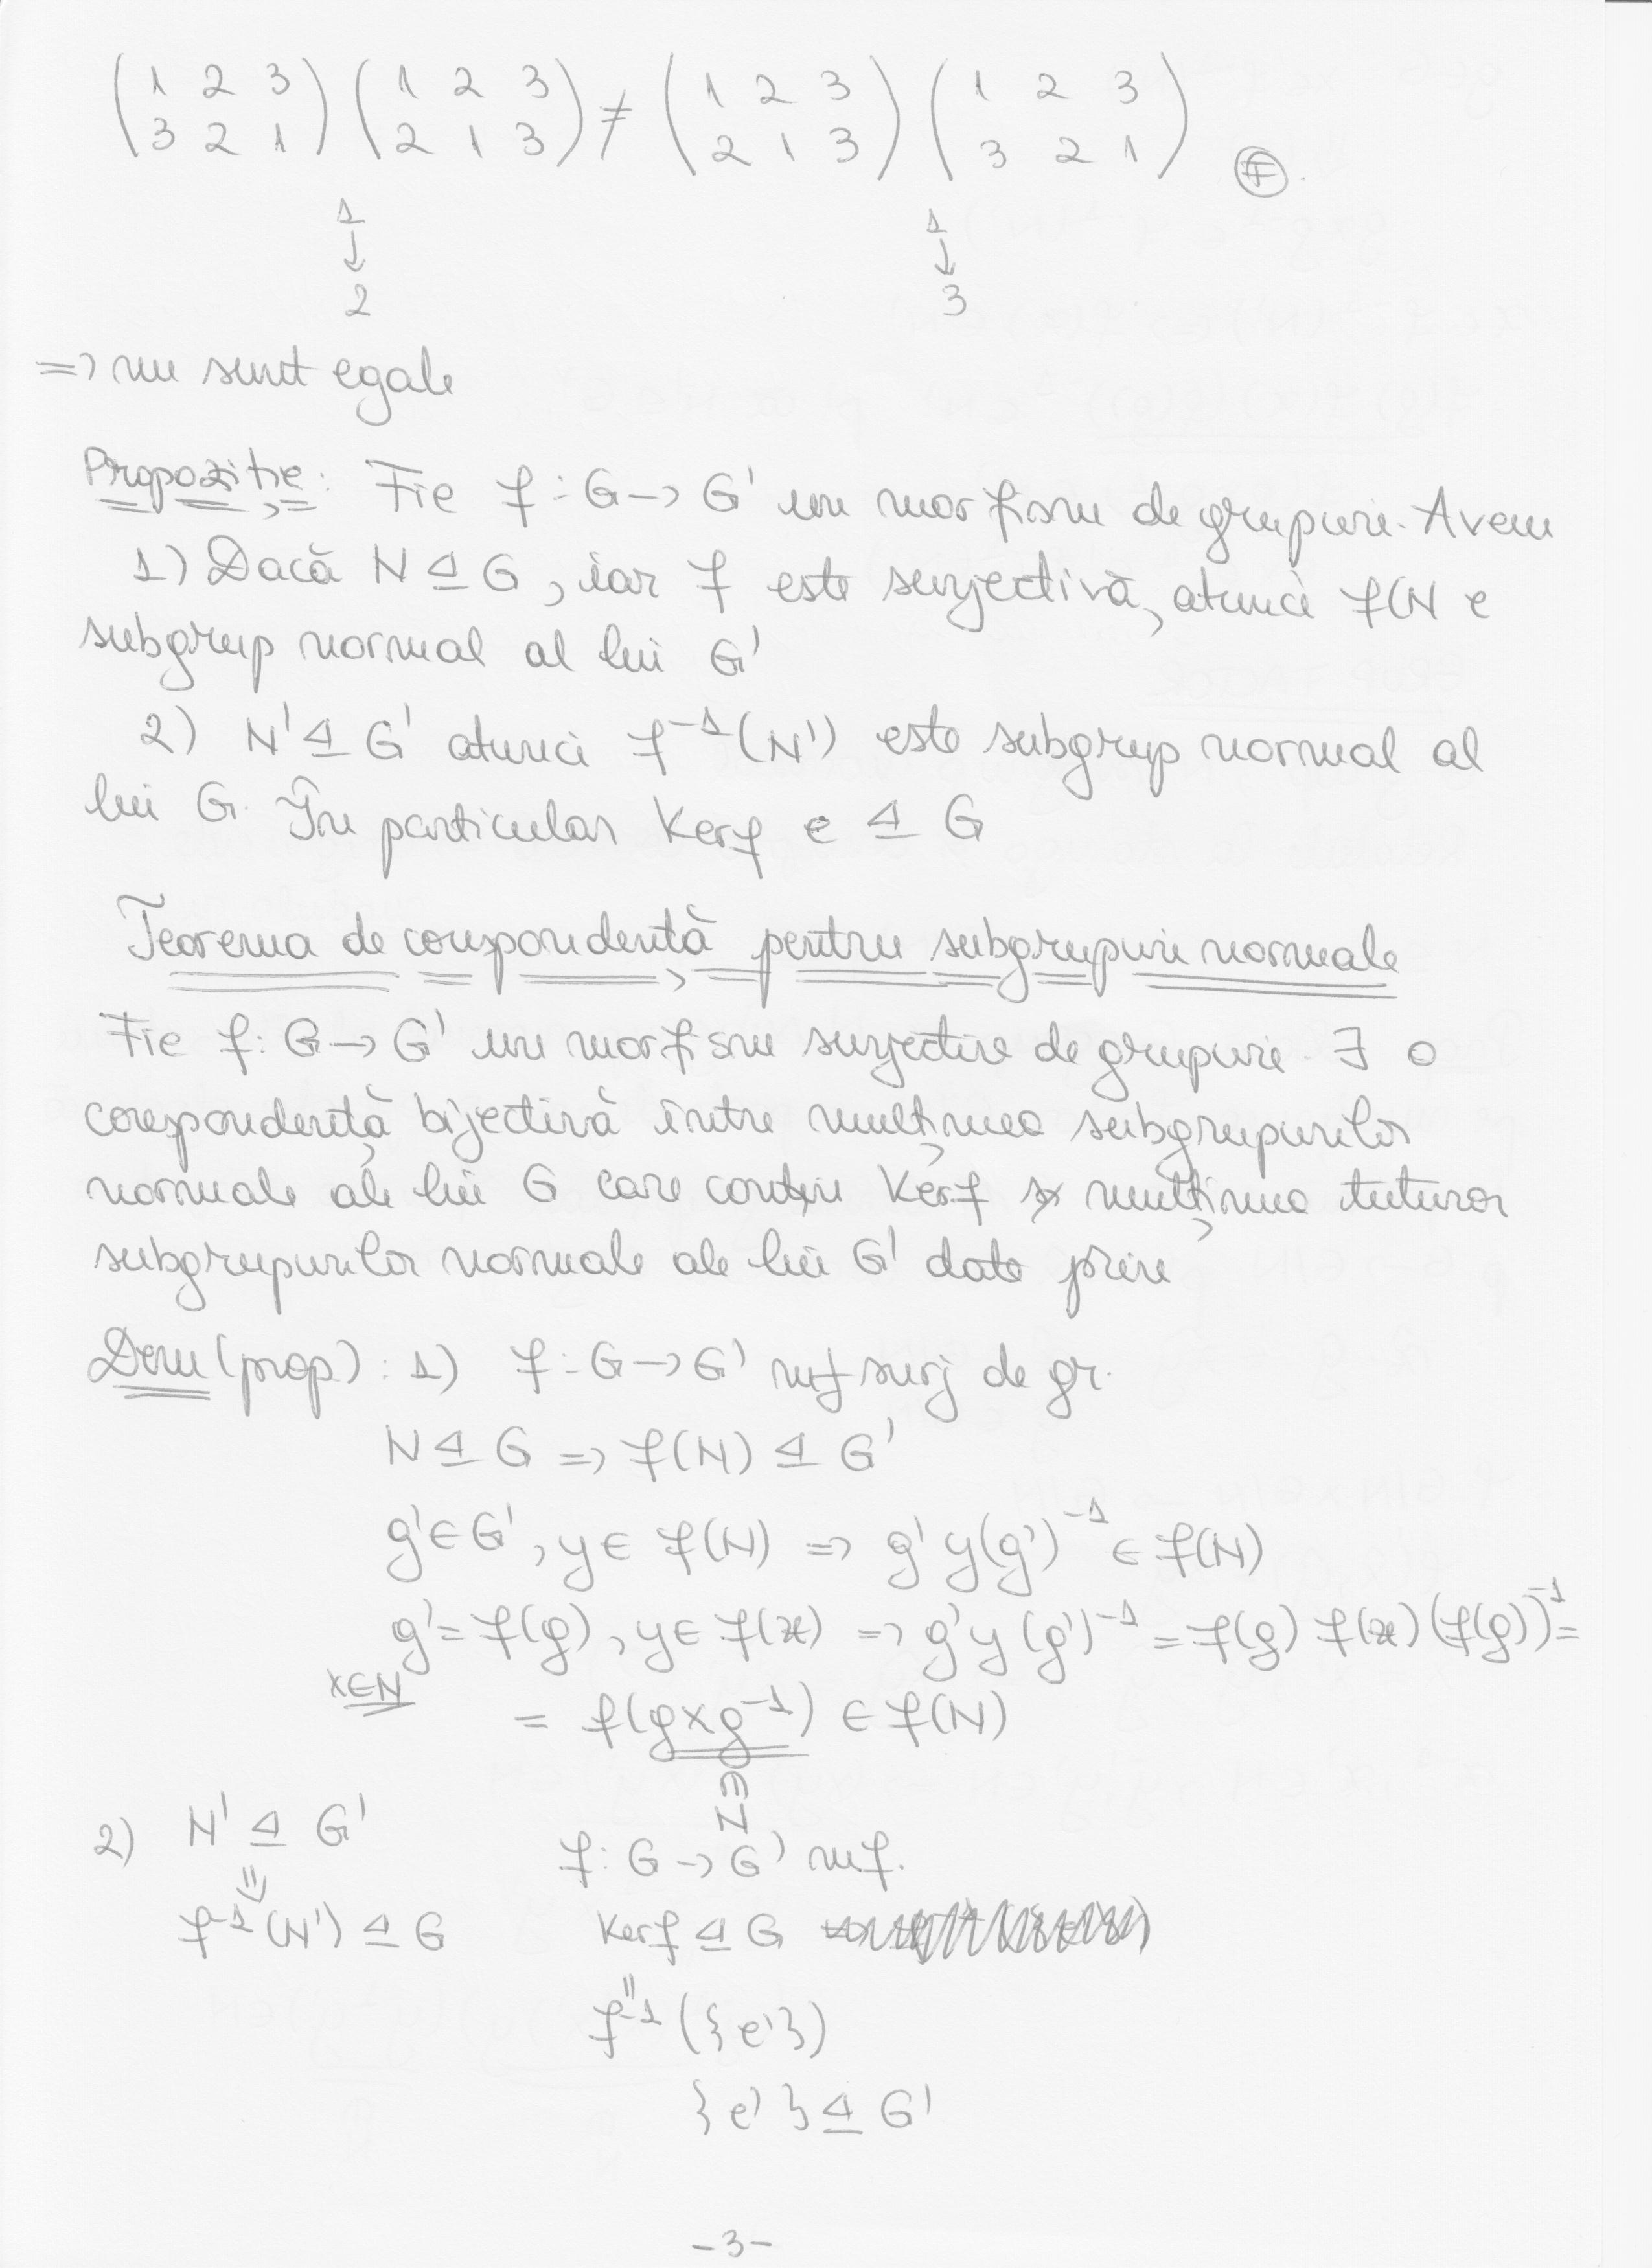 (1 2 3) (1 2 3) ≠ (1 2 3) (1 2 3)
(3 2 1) (2 1 3) (2 1 3) (3 2 1) .
1 1
↓ ↓
2 3
=> nu sunt egale
Propoziție: Fie f: G -> G' un morfism de grupuri. Avem
1) Dacă N ⊴ G, iar f este surjectivă, atunci f(N e
subgrup normal al lui G'
2) N' ⊴ G' atunci f⁻¹(N') este subgrup normal al
lui G. În particular Kerf e ⊴ G
Teorema de corespondență pentru subgrupuri normale
Fie f: G -> G' un morfism surjectiv de grupuri. ∃ o
corespondență bijectivă între mulțimea subgrupurilor
normale ale lui G care conțin Kerf și mulțimea tuturor
subgrupurilor normale ale lui G' date prin
Dem (prop): 1) f: G -> G' mf surj de gr.
N ⊴ G => f(N) ⊴ G'
g' ∈ G', y ∈ f(N) => g'y(g')⁻¹ ∈ f(N)
g' = f(g), y ∈ f(x) => g'y(g')⁻¹ = f(g) f(x) (f(g))⁻¹ =
x∈N
= f(gxg⁻¹) ∈ f(N)
∈
N
2) N' ⊴ G' f: G -> G' mf.
⇓
f⁻¹(N') ⊴ G Kerf ⊴ G
=
f⁻¹({e'})
{e'} ⊴ G'
-3-